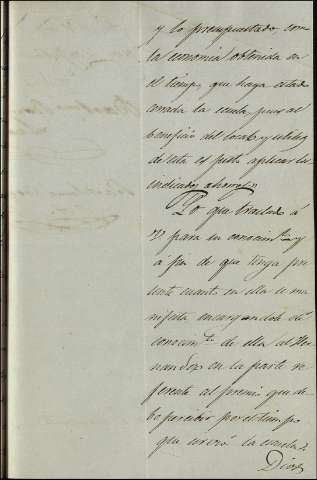 y lo presupuestado con
la economia obtenida en
el tiempo que haya estado
cerrada la escuela, pues al
beneficio del local y
de esta es justo aplicar los
indicados ahorros,,
Lo que traslado á
V. para su conocimto y
á fin de que tenga pre
sente cuanto en ella se ma
nifiesta encargandole dé
conocimto de ella al Her
nandez en la parte re
ferente al premio que de
be percibir por el tiempo
que sirvió la escuela.
Dios